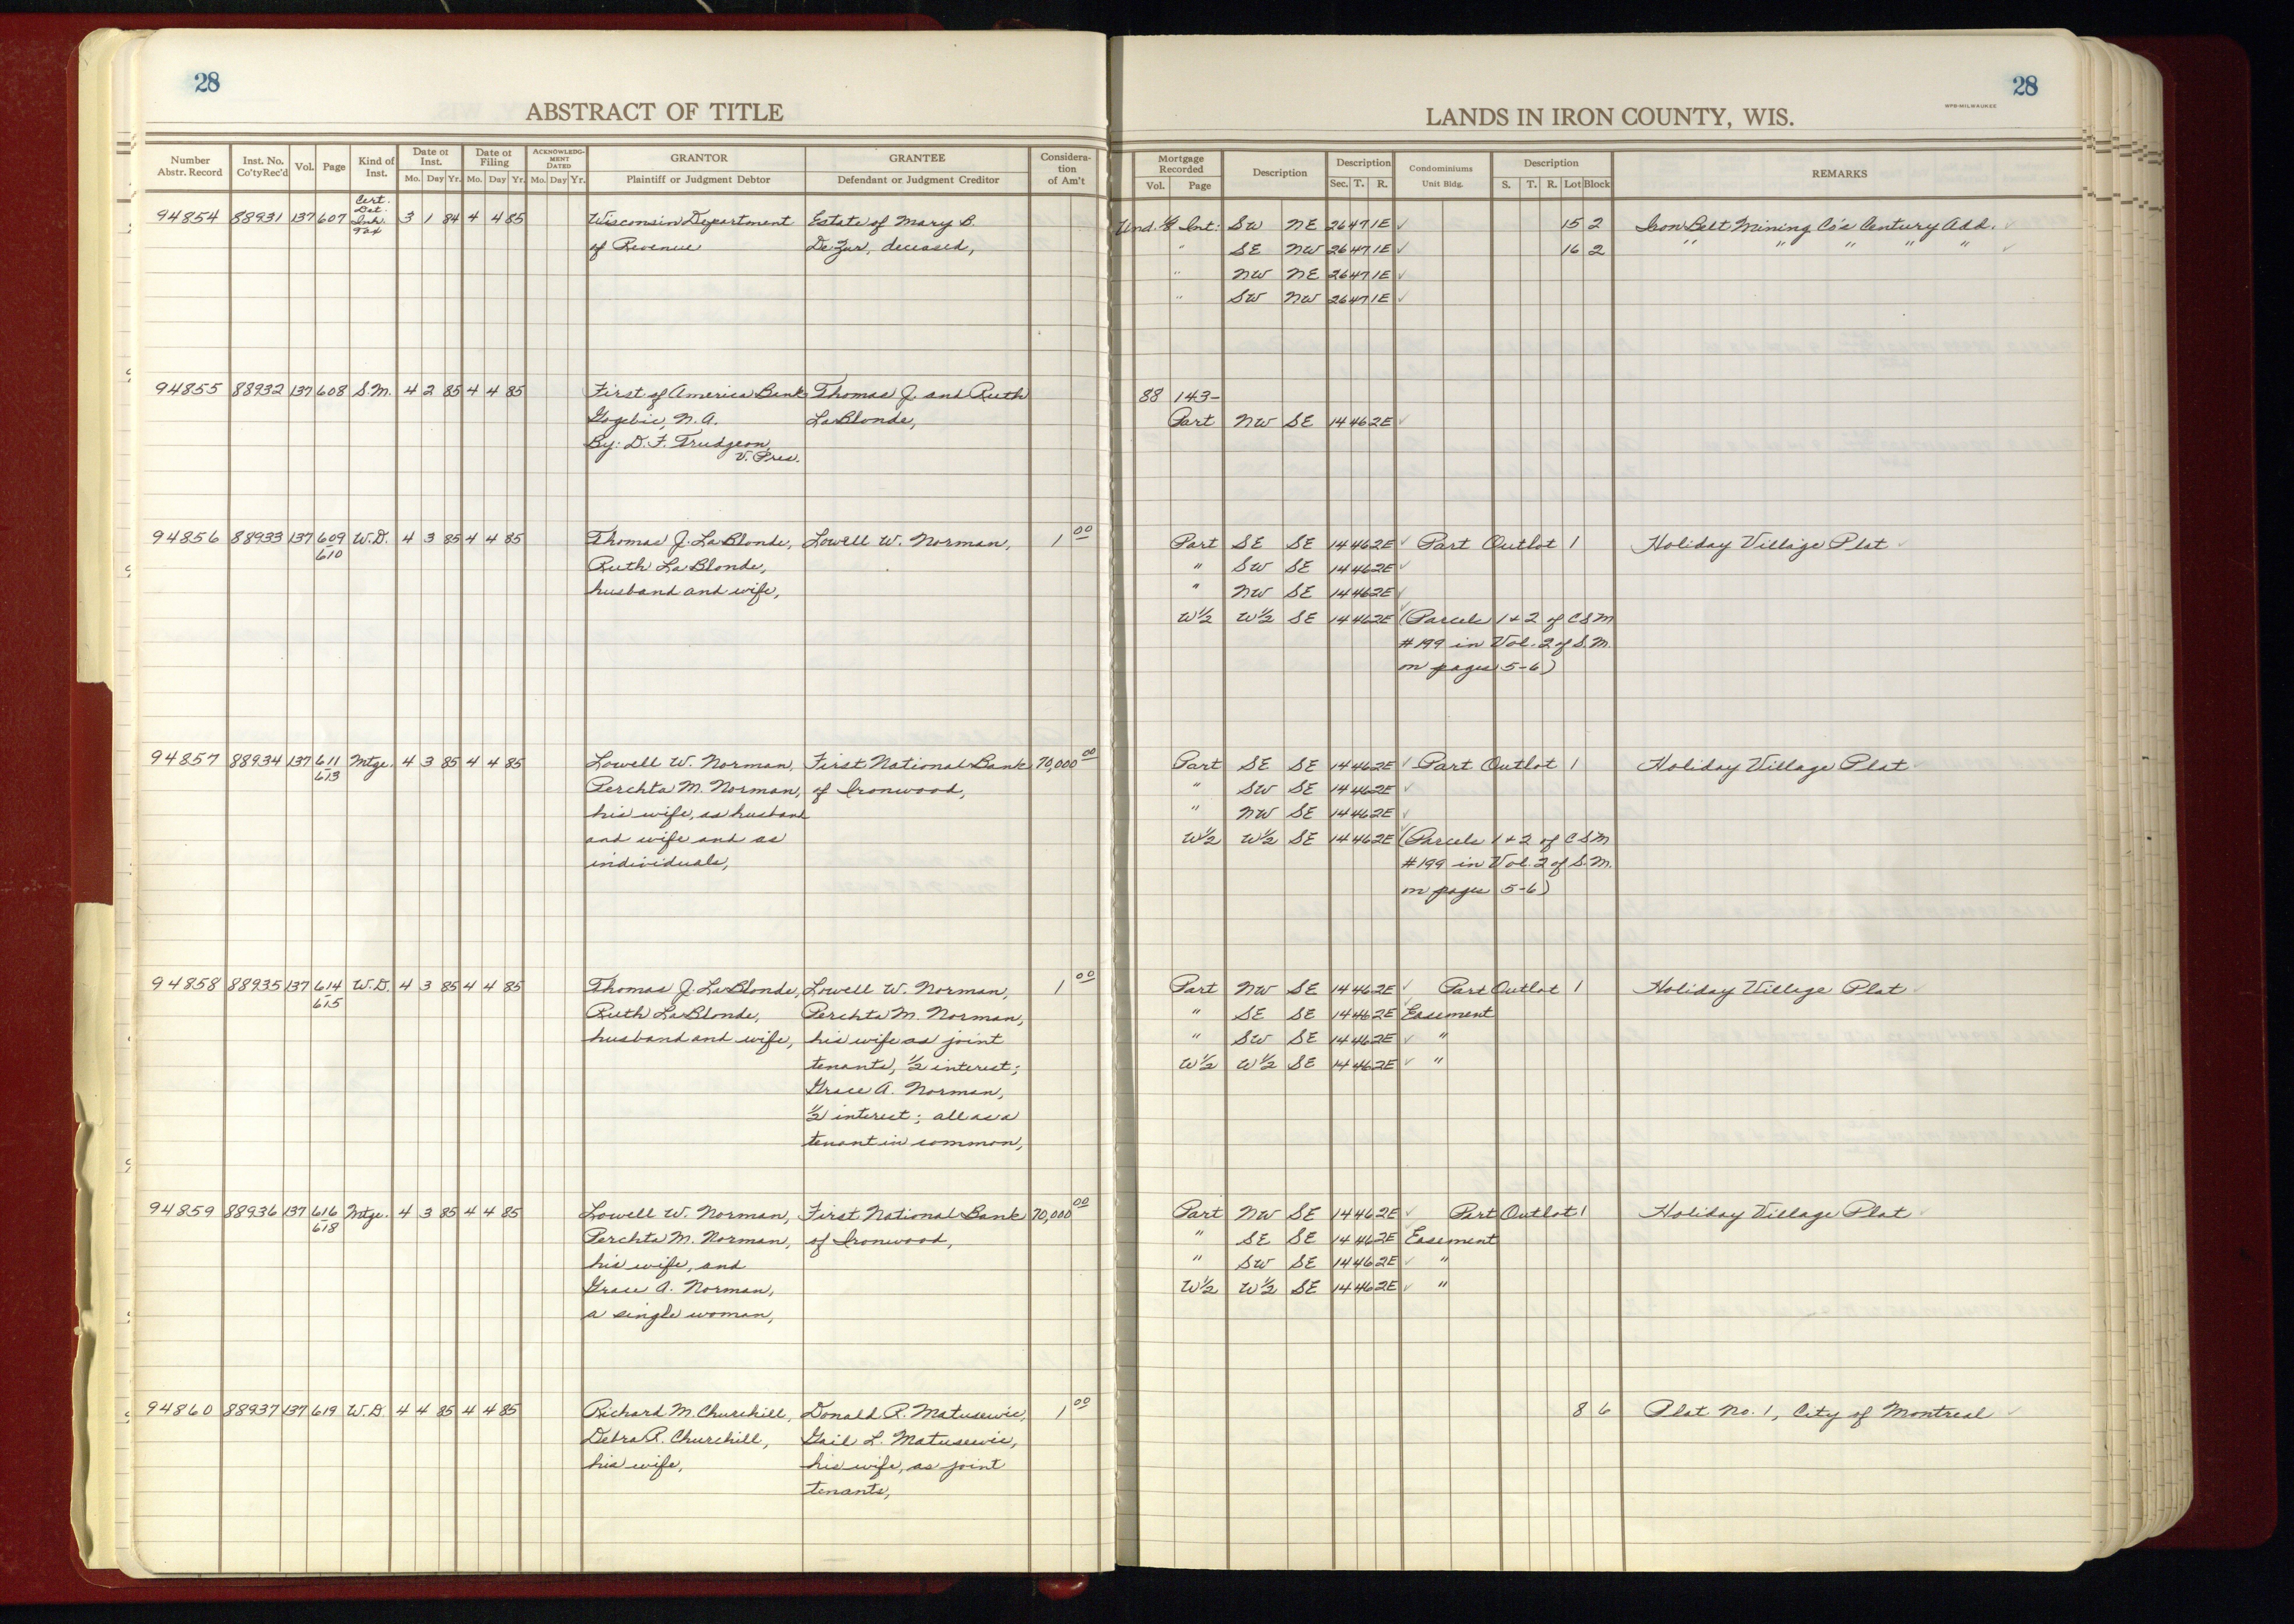 28
28
ABSTRACT OF TITLE
LANDS IN IRON COUNTY, WIS.
WPB-MILWAUKEE
Number Abstr. Record Inst. No. Co'ty Rec'd Vol. Page Kind of Inst. Date of Inst. Mo. Day Yr. Date of Filing Mo. Day Yr. ACKNOWLEDGMENT DATED Mo. Day Yr. GRANTOR Plaintiff or Judgment Debtor GRANTEE Defendant or Judgment Creditor Consideration of Am't
Mortgage Recorded Vol. Page Description Description Sec. T. R. Condominiums Unit Bldg. Description S. T. R. Lot Block REMARKS
Cert.
Det.
94854 88931 137 607 Inh. 3 1 84 4 4 85 Wisconsin Department Estate of Mary B. Und. 1/8 Int: SW NE 26 47 1E ✓ 15 2 Iron Belt Mining Co's Century Add. ✓
Tax
of Revenue De Zur, deceased, " SE NW 26 47 1E ✓ 16 2 " " " " " ✓
" NW NE 26 47 1E ✓
" SW NW 26 47 1E ✓
94855 88932 137 608 S.M. 4 2 85 4 4 85 First of America Bank Thomas J. and Ruth 88 143-
Gogebic, N.A. LaBlonde, Part NW SE 14 46 2E ✓
By: D. F. Trudgeon,
V. Pres.
94856 88933 137 609 W.D. 4 3 85 4 4 85 Thomas J. LaBlonde, Lowell W. Norman, 1 00 Part SE SE 14 46 2E ✓ Part Outlot 1 Holiday Village Plat ✓
610 Ruth LaBlonde, " SW SE 14 46 2E ✓
husband and wife, " NW SE 14 46 2E ✓
W½ W½ SE 14 46 2E (Parcels 1+2 of CSM
#199 in Vol. 2 of S.M.
on pages 5-6)
94857 88934 137 611 Mtge. 4 3 85 4 4 85 Lowell W. Norman, First National Bank 70,000 00 Part SE SE 14 46 2E ✓ Part Outlot 1 Holiday Village Plat ✓
613 Perchta M. Norman, of Ironwood, " SW SE 14 46 2E ✓
his wife, as husband " NW SE 14 46 2E ✓
and wife and as W½ W½ SE 14 46 2E (Parcels 1+2 of CSM
individuals, #199 in Vol. 2 of S.M.
on pages 5-6)
94858 88935 137 614 W.D. 4 3 85 4 4 85 Thomas J. LaBlonde, Lowell W. Norman, 1 00 Part NW SE 14 46 2E ✓ Part Outlot 1 Holiday Village Plat ✓
615 Ruth LaBlonde, Perchta M. Norman, " SE SE 14 46 2E Easement
husband and wife, his wife as joint " SW SE 14 46 2E ✓ "
tenants, ½ interest; W½ W½ SE 14 46 2E ✓ "
Grace A. Norman,
½ interest; all as a
tenant in common,
94859 88936 137 616 Mtge. 4 3 85 4 4 85 Lowell W. Norman, First National Bank 70,000 00 Part NW SE 14 46 2E ✓ Part Outlot 1 Holiday Village Plat ✓
618 Perchta M. Norman, of Ironwood, " SE SE 14 46 2E Easement
his wife, and " SW SE 14 46 2E ✓ "
Grace A. Norman, W½ W½ SE 14 46 2E ✓ "
a single woman,
94860 88937 137 619 W.D. 4 4 85 4 4 85 Richard M. Churchill, Donald R. Matusewic, 1 00 8 6 Plat No. 1, City of Montreal ✓
Debra R. Churchill, Gail L. Matusewic,
his wife, his wife, as joint
tenants,